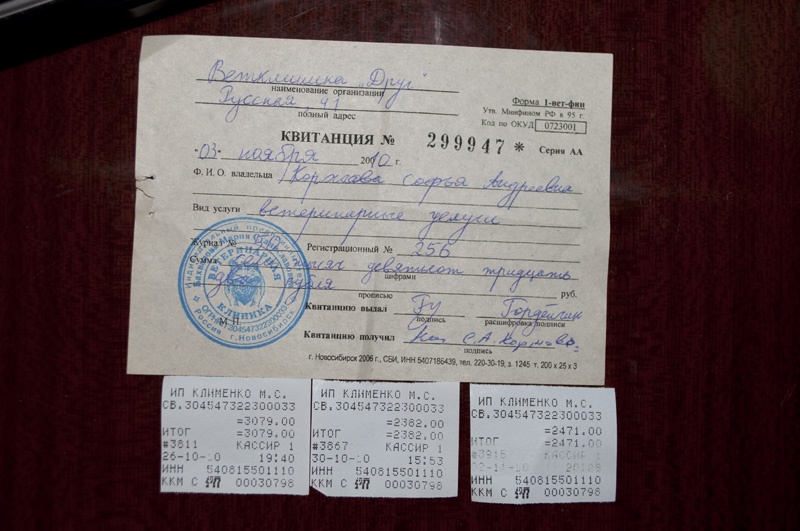 Ветклиника "Друг"
наименование организации
Русская, 41
полный адрес
Форма 1-вет-фин
Утв. Минфином РФ в 95 г.
Код по ОКУД 0723001
КВИТАНЦИЯ № 299947 * Серия АА
"03" ноября 2010 г.
Ф. И. О. владельца Софья Андреевна
Вид услуги ветеринарные услуги
Журнал № Регистрационный № 256
Сумма семь тысяч девятьсот тридцать
цифрами
два рубля руб.
прописью
Квитанцию выдал
подпись расшифровка подписи
Квитанцию получил
подпись
г. Новосибирск 2006 г., СВИ, ИНН 5407186439, тел. 220-30-19, з. 1245 т. 200 x 25 x 3
ВЕТЕРИНАРНАЯ
КЛИНИКА
Россия г.Новосибирск
М.П.
ИП КЛИМЕНКО М.С.
СВ.304547322300033
=3079.00
ИТОГ =3079.00
#3811 КАССИР 1
26-10-10 19:40
ИНН 540815501110
ККМ С ФП 00030798
ИП КЛИМЕНКО М.С.
СВ.304547322300033
=2382.00
ИТОГ =2382.00
#3867 КАССИР 1
30-10-10 15:53
ИНН 540815501110
ККМ С ФП 00030798
ИП КЛИМЕНКО М.С.
СВ.304547322300033
=2471.00
ИТОГ =2471.00
#3915 КАССИР 1
ИНН 540815501110
ККМ С ФП 00030798